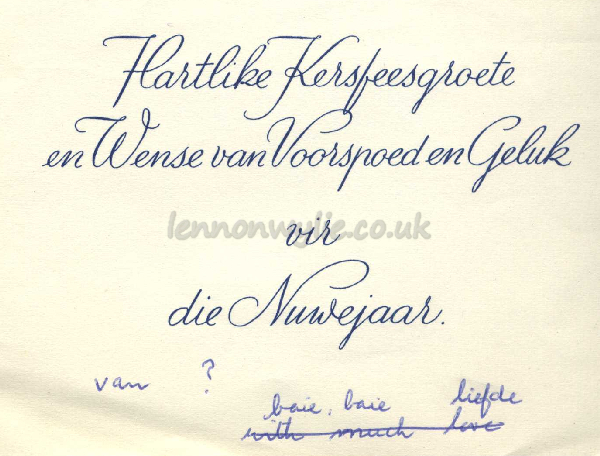 Hartlike Kersfeesgroete
en Wense van Voorspoed en Geluk
lennonwylie.co.uk
vir
die Nuwejaar.
van ?
baie, baie liefde
with much love